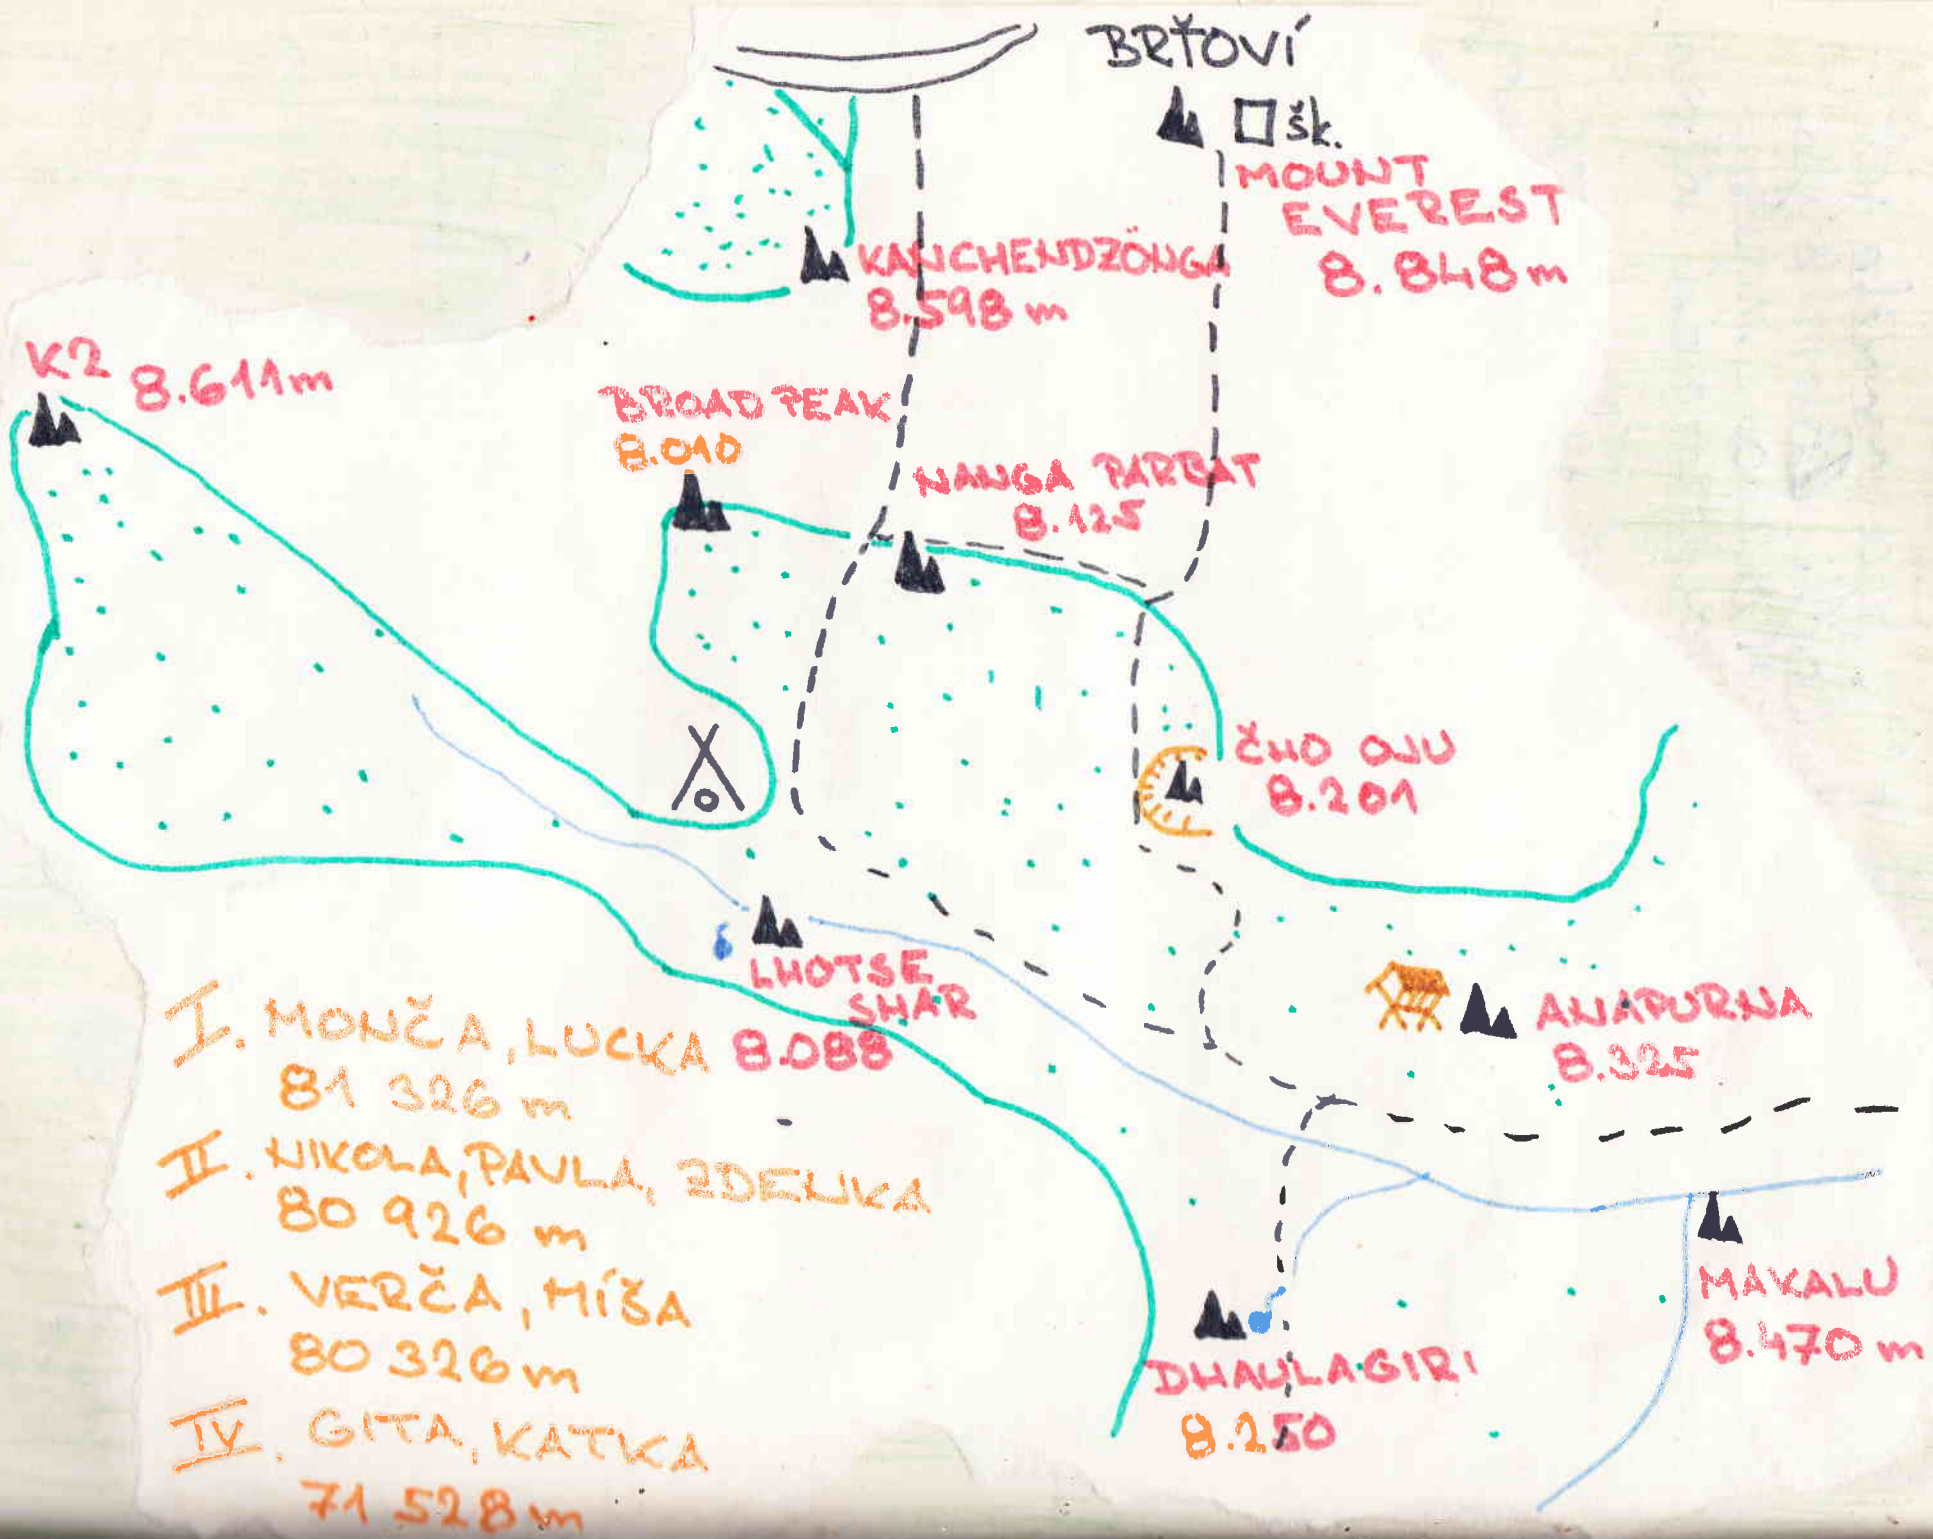 BRŤOVÍ
šk.
MOUNT
EVEREST
8.848 m
KANCHENDZÖNGA
8.598 m
K2 8.611m
BROAD PEAK
8.010
NANGA PARBAT
8.125
ČHO OJU
8.201
LHOTSE
SHAR
8.088
ANAPURNA
8.325
MAKALU
8.470 m
DHAULAGIRI
8.250
I. MONČA, LUCKA
81 326 m
II. NIKOLA, PAVLA, ZDENKA
80 926 m
III. VERČA, MÍŠA
80 326 m
IV. GITA, KATKA
71 528 m